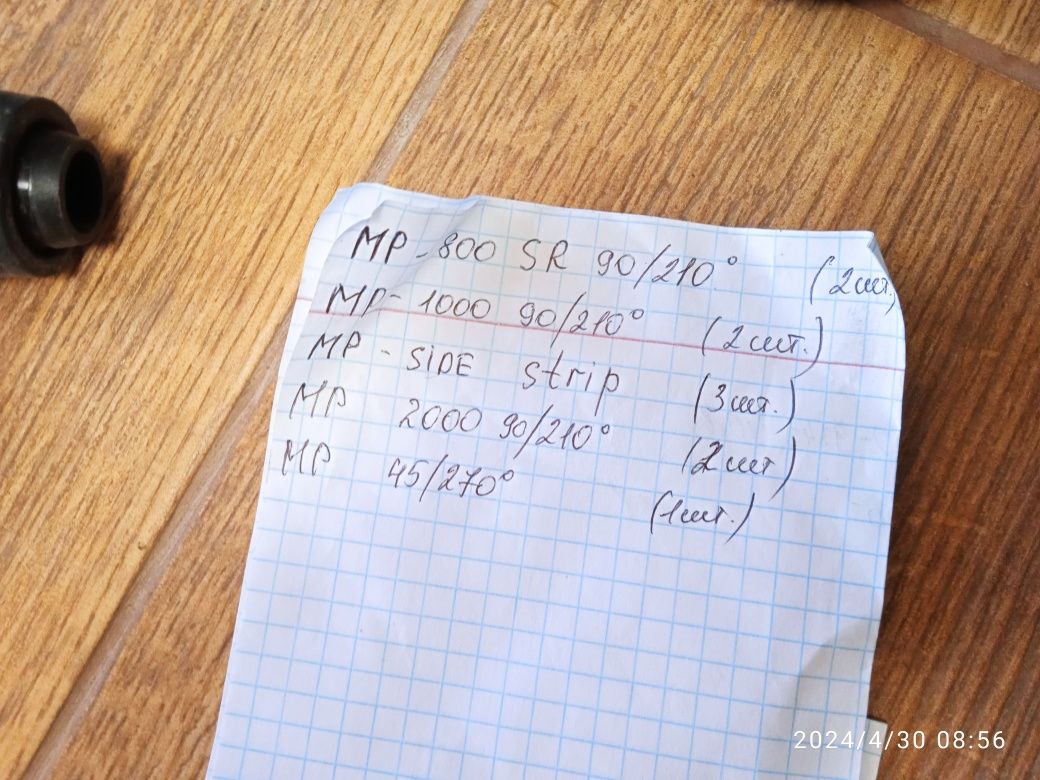 MP-800 SR 90/210° (2шт.)
MP-1000 90/210° (2шт.)
MP-SiDE strip (3шт.)
MP 2000 90/210° (2шт)
MP 45/270° (1шт.)
2024/4/30 08:56